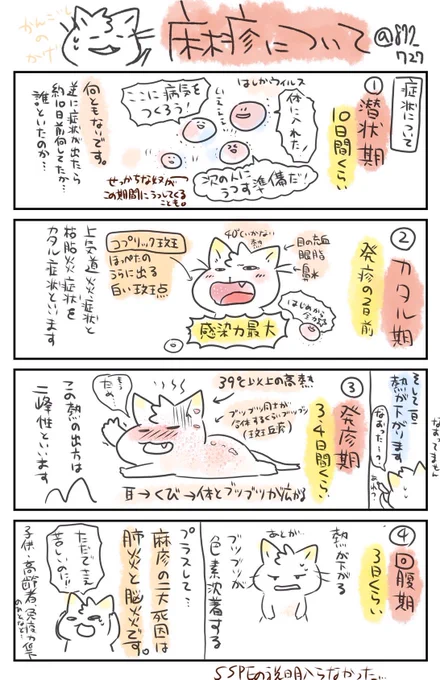 かんごしの
かげ
麻疹について
@877_727
症状について
① 潜状期
10日間くらい
はしかウイルス
体に入れた!
いぇーい
ここに病気を
つくろう!
次の人に
うつす準備だ!
何ともないです。
逆に症状が出たら
約10日前何してたか…
誰といたのか…
せっかちなヤツが
この期間にうつしてくる
ことも。
② カタル期
発疹の3日前
40℃いかない
熱
目の充血
眼脂
鼻水
はじめから
全力
コプリック斑
ほっぺたの
うらに出る
白い斑点
感染力最大
上気道炎症状と
結膜炎症状を
カタル症状といいます
そして一旦
熱が下がります
なおった…?
あれ?
なおってません
③ 発疹期
3、4日間くらい
39℃以上の高熱
ブツブツ同士が
合体するくらいブツブツ
(斑丘疹)
もう
だめ…
耳→くび→体とブツブツが広がる
この熱の出方は
二峰性といいます
④ 回腹期
3日くらい
熱が下がる
あとが…
ブツブツが
色素沈着する
プラスして…
麻疹の二大死因は
肺炎と脳炎です。
ただでさえ
苦しいのに!!
子供、高齢者、免疫力低下
SSPEの説明入らなかった…